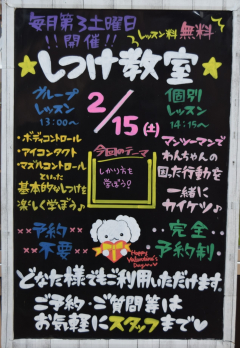 毎月第3土曜日
!!開催!!
レッスン料無料
★しつけ教室★
グループ
レッスン
13:00〜
2/15(土)
個別
レッスン
14:15〜
・ボディコントロール
・アイコンタクト
・マズルコントロール
といった
基本的なしつけを
楽しく学ぼう♪
今回のテーマ
しかり方を
学ぼう?
マンツーマンで
わんちゃんの
困った行動を
一緒に
カイケツ♪
予約
不要
Happy
Valentine's
Day
完全
予約制
どなた様でもご利用いただけます。
ご予約・ご質問等は
お気軽にスタッフまで♥